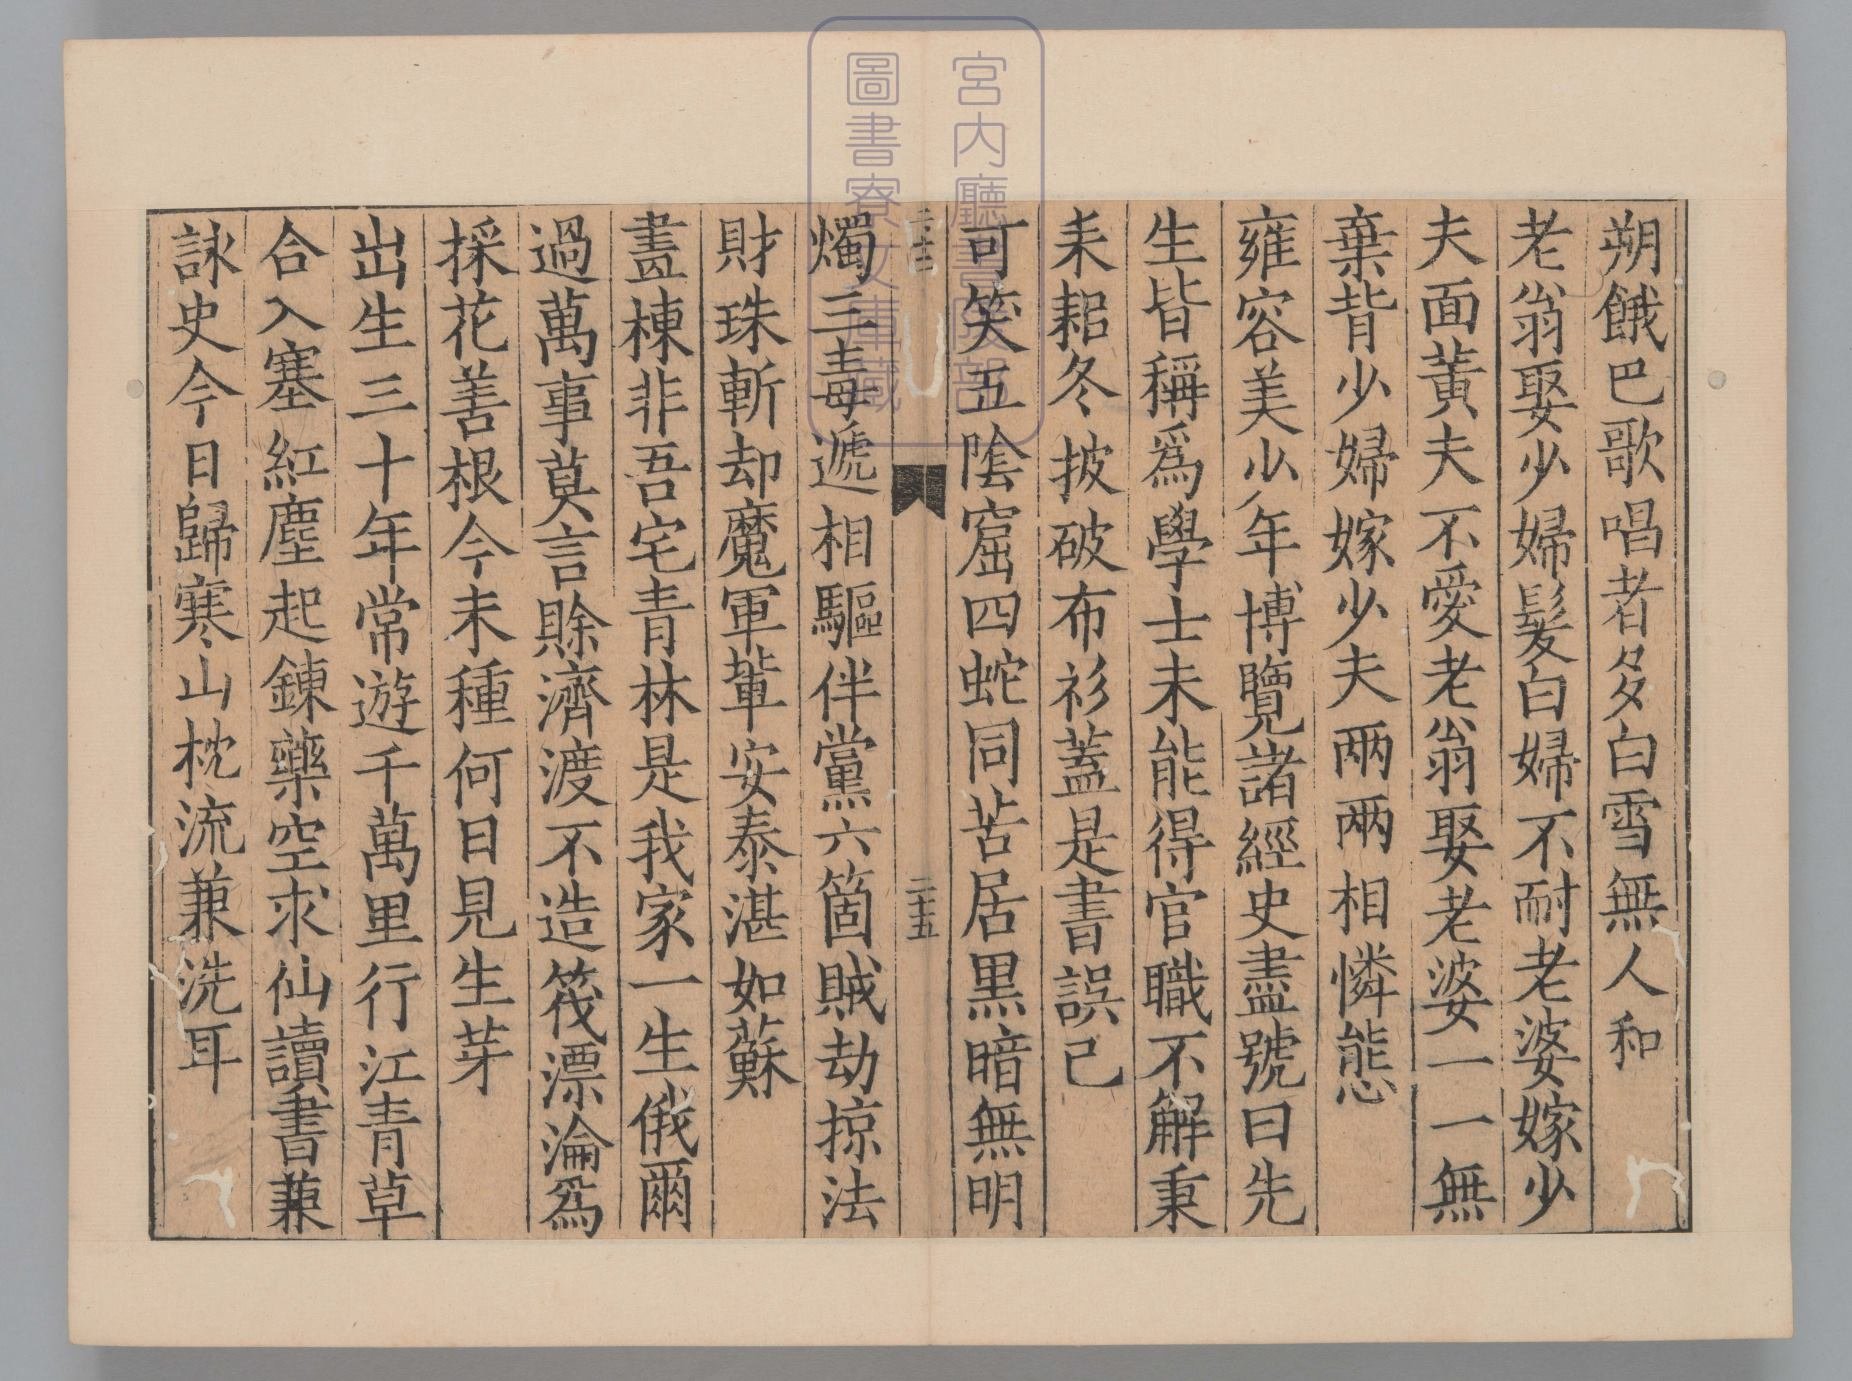 朔餓巴歌唱者多白雪無人和
老翁娶少婦髮白婦不耐老婆嫁少
夫面黃夫不愛老翁娶老婆一一無
棄背少婦嫁少夫兩兩相憐態
雍容美少年博覽諸經史盡號曰先
生皆稱爲學士未能得官職不解秉
耒耜冬披破布衫蓋是書誤己
可笑五陰窟四蛇同苦居黑暗無明
二十五
燭三毒遞相驅伴黨六箇賊劫掠法
財珠斬却魔軍輩安泰湛如蘇
畫棟非吾宅青林是我家一生俄爾
過萬事莫言賖濟渡不造筏漂淪爲
採花善根今未種何日見生芽
出生三十年常遊千萬里行江青草
合入塞紅塵起鍊藥空求仙讀書兼
詠史今日歸寒山枕流兼洗耳
宮內廳書陵部
圖書寮文庫藏